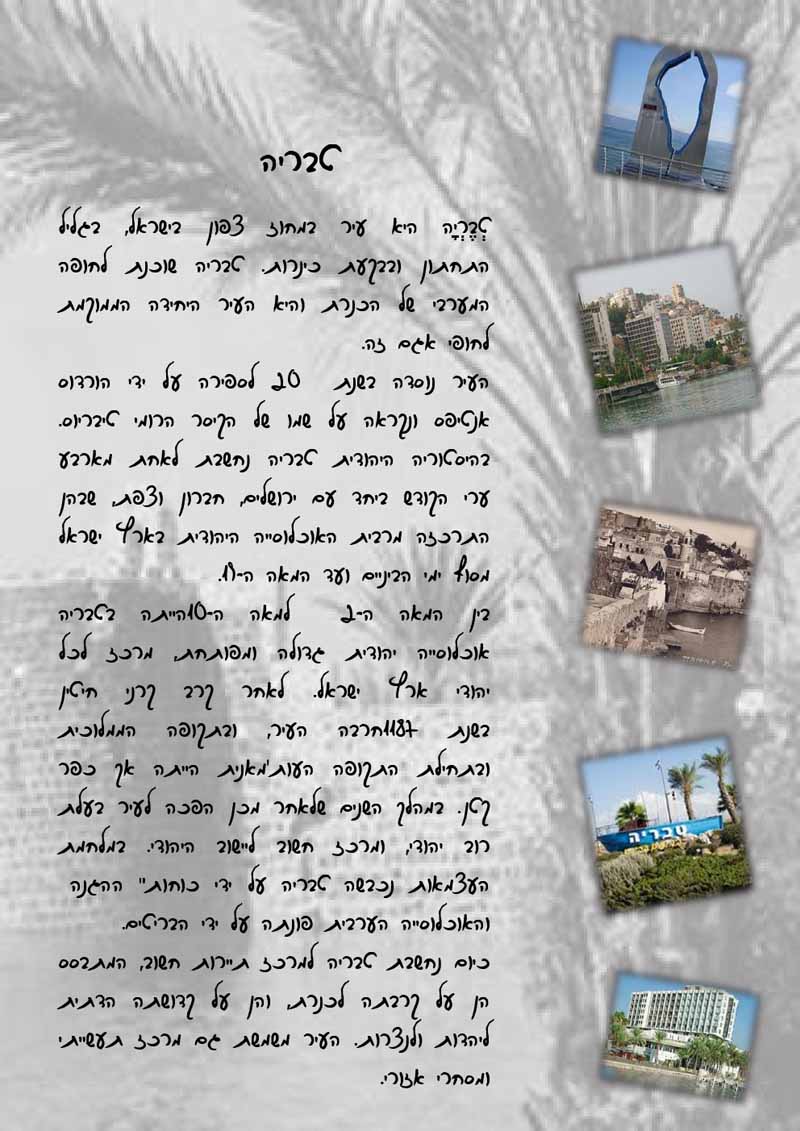 טבריה
טְבֶרְיָה היא עיר במחוז צפון בישראל, בגליל
התחתון ובבקעת כינרות. טבריה שוכנת לחופה
המערבי של הכנרת והיא העיר היחידה הממוקמת
לחופי אגם זה.
העיר נוסדה בשנת 20 לספירה על ידי הורדוס
אנטיפס ונקראה על שמו של הקיסר הרומי טיבריוס.
בהיסטוריה היהודית טבריה נחשבת לאחת מארבע
ערי הקודש ביחד עם ירושלים, חברון וצפת, שבהן
התרכזה מרבית האוכלוסייה היהודית בארץ ישראל
מסוף ימי הביניים ועד המאה ה-19.
בין המאה ה-2 למאה ה-10הייתה בטבריה
אוכלוסייה יהודית גדולה ומפותחת, מרכז לכל
יהודי ארץ ישראל. לאחר קרב קרני חיטין
בשנת 1187חרבה העיר, ובתקופה הממלוכית
ובתחילת התקופה העות'מאנית הייתה אך כפר
קטן. במהלך השנים שלאחר מכן הפכה לעיר בעלת
רוב יהודי, ומרכז חשוב ליישוב היהודי. במלחמת
העצמאות נכבשה טבריה על ידי כוחות" ההגנה
והאוכלוסייה הערבית פונתה על ידי הבריטים.
כיום נחשבת טבריה למרכז תיירות חשוב, המתבסס
הן על קרבתה לכנרת, והן על קדושתה הדתית
ליהדות ולנצרות. העיר משמשת גם מרכז תעשייתי
ומסחרי אזורי.
טבריה